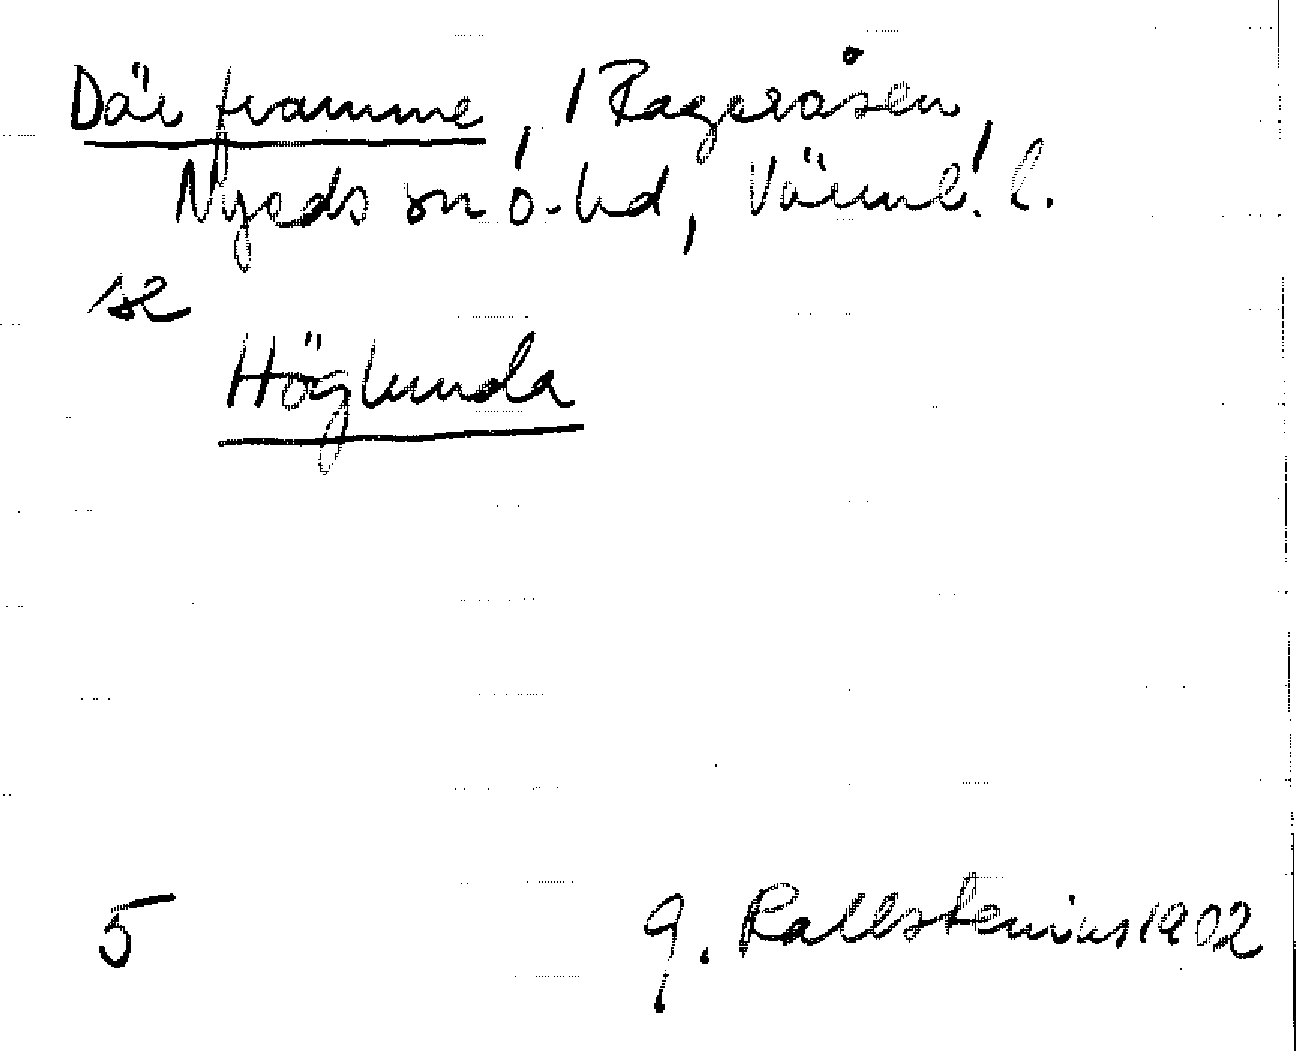 Där framme, Rageråsen,
Nyeds sn o. hd, Värml. l.
se
Höglunda
5 G. Kallstenius 1902